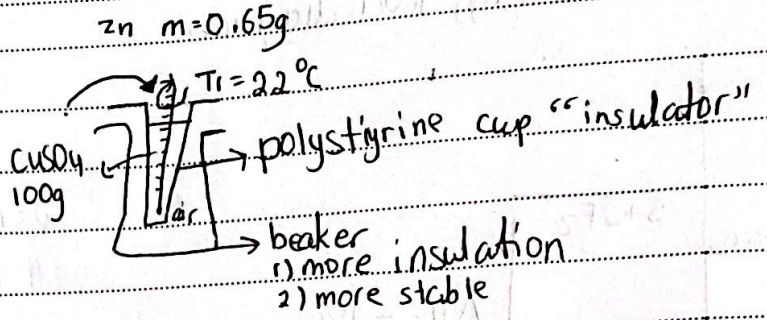 zn m=0.65g
T1=22°C
CuSO4
100g
polystyrine cup "insulator"
air
beaker
1) more insulation
2) more stable